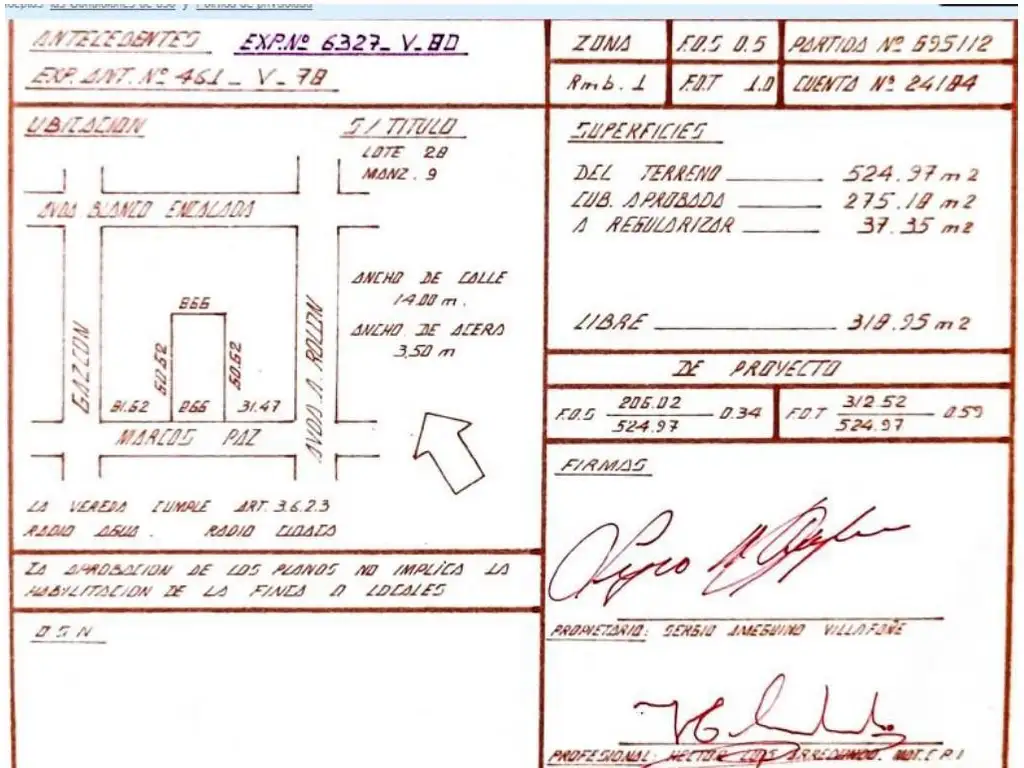 las Condiciones de uso y Política de privacidad
ANTECEDENTES EXP.Nº 6327_V_80
EXP. ANT. Nº 461_V_78
ZONA
Rmb. 1
F.O.S 0.5
F.O.T 1.0
PARTIDA Nº 695112
CUENTA Nº 24184
UBICACION
S/TITULO
LOTE 28
MANZ. 9
AVDA BLANCO ENCALADA
GAZCON
AVDA. A. ROLON
866
60.62
60.62
81.62 866 31.47
MARCOS PAZ
ANCHO DE CALLE
14.00 m.
ANCHO DE ACERA
3.50 m
LA VEREDA CUMPLE ART. 3.6.2.3
RADIO AGUA. RADIO CLOACA
LA APROBACION DE LOS PLANOS NO IMPLICA LA
HABILITACION DE LA FINCA O LOCALES
O S N
SUPERFICIES
DEL TERRENO 524.97 m2
CUB. APROBADA 275.18 m2
A REGULARIZAR 37.35 m2
LIBRE 318.95 m2
DE PROYECTO
F.O.S 206.02 0.34
524.97
F.O.T 312.52 0.59
524.97
FIRMAS
PROPIETARIO: SERGIO AMEGHINO VILLAFAÑE
PROFESIONAL: HECTOR LUIS ARREDONDO. MAT.C.P.I